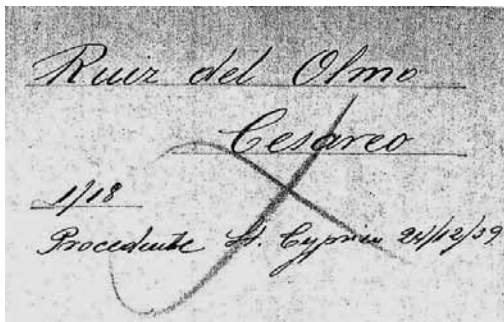 Ruiz del Olmo
Cesareo
1/18
Procedente St. Cyprien 24/12/39